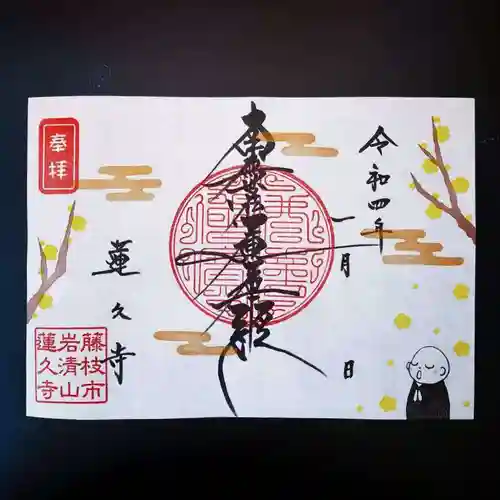 令和四年
一月 日
南無妙法蓮華経
奉拝
蓮久寺
藤枝市
岩清山
蓮久寺